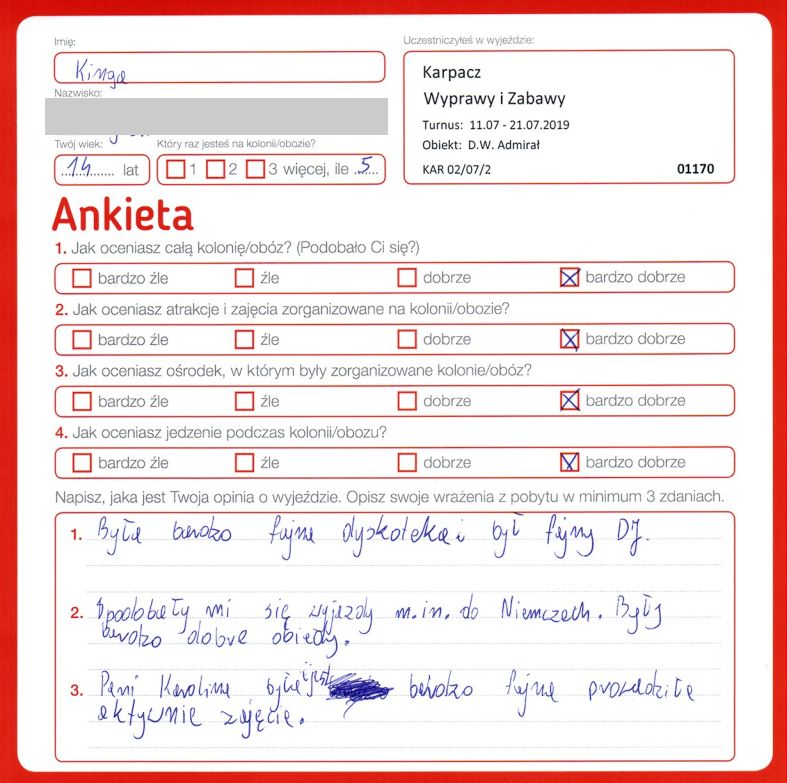 Imię:
Kinga
Nazwisko:
Twój wiek:
14 lat
Który raz jesteś na kolonii/obozie?
1 2 3 więcej, ile 5
Uczestniczyłeś w wyjeździe:
Karpacz
Wyprawy i Zabawy
Turnus: 11.07 - 21.07.2019
Obiekt: D.W. Admirał
KAR 02/07/2 01170
Ankieta
1. Jak oceniasz całą kolonię/obóz? (Podobało Ci się?)
bardzo źle źle dobrze bardzo dobrze
2. Jak oceniasz atrakcje i zajęcia zorganizowane na kolonii/obozie?
bardzo źle źle dobrze bardzo dobrze
3. Jak oceniasz ośrodek, w którym były zorganizowane kolonie/obóz?
bardzo źle źle dobrze bardzo dobrze
4. Jak oceniasz jedzenie podczas kolonii/obozu?
bardzo źle źle dobrze bardzo dobrze
Napisz, jaka jest Twoja opinia o wyjeździe. Opisz swoje wrażenia z pobytu w minimum 3 zdaniach.
1. Była bardzo fajna dyskoteka i był fajny DJ.
2. Spodobały mi się wyjazdy m.in. do Niemczech. Były
bardzo dobre obiady.
3. Pani Karolina była i jest bardzo fajna prowadziła
aktywnie zajęcia.